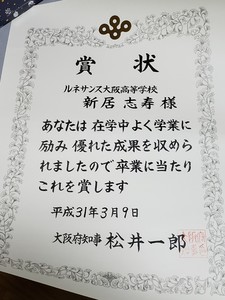 賞状
ルネサンス大阪高等学校
新居 志寿 様
あなたは在学中よく学業に
励み 優れた成果を収めら
れましたので卒業に当たり
これを賞します
平成31年3月9日
大阪府知事 松井一郎